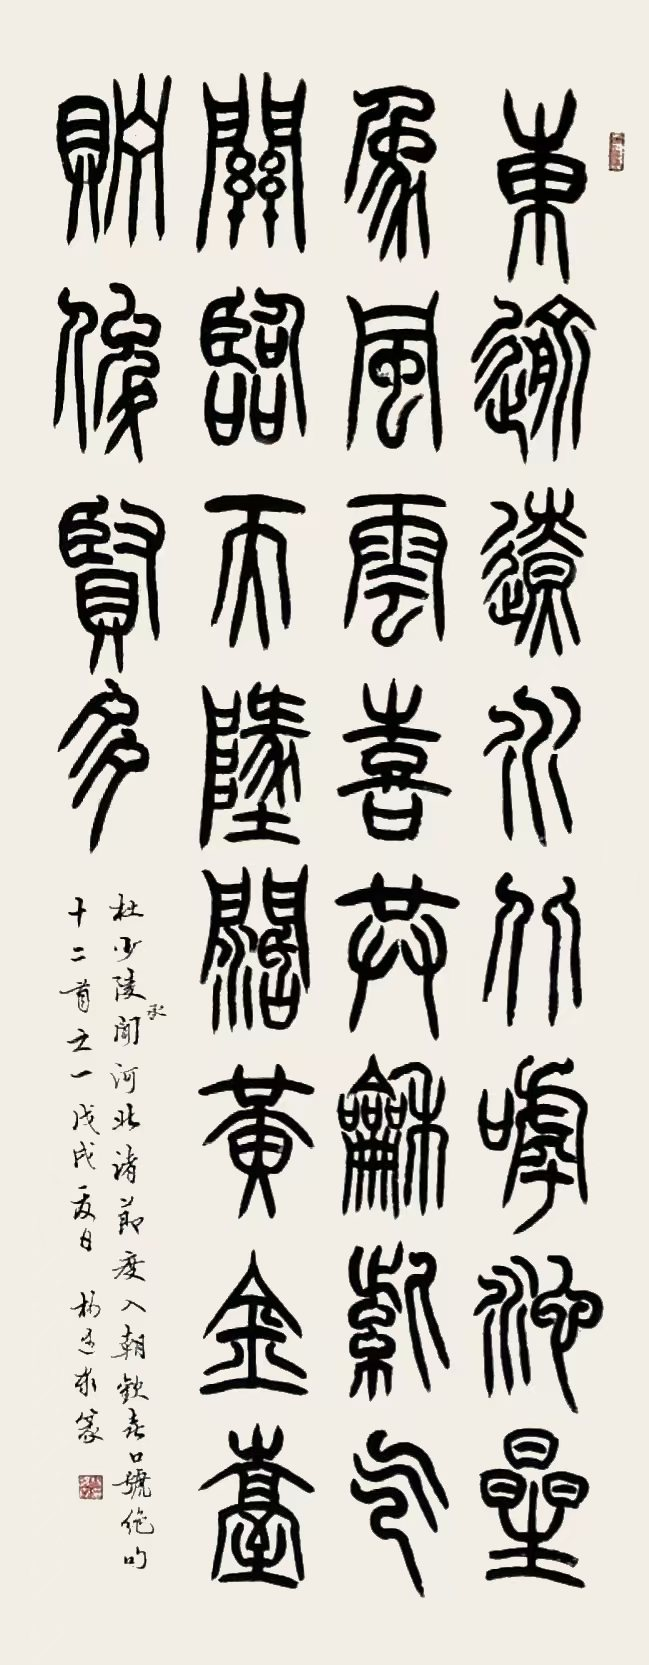 東逾遼水北嘑沱星
象風雲喜共龢紫气
關臨天墬闊黃金臺
貯俊賢多
杜少陵承聞河北諸節度入朝歡喜口號絕句
十二首之一戊戌夏日 篆